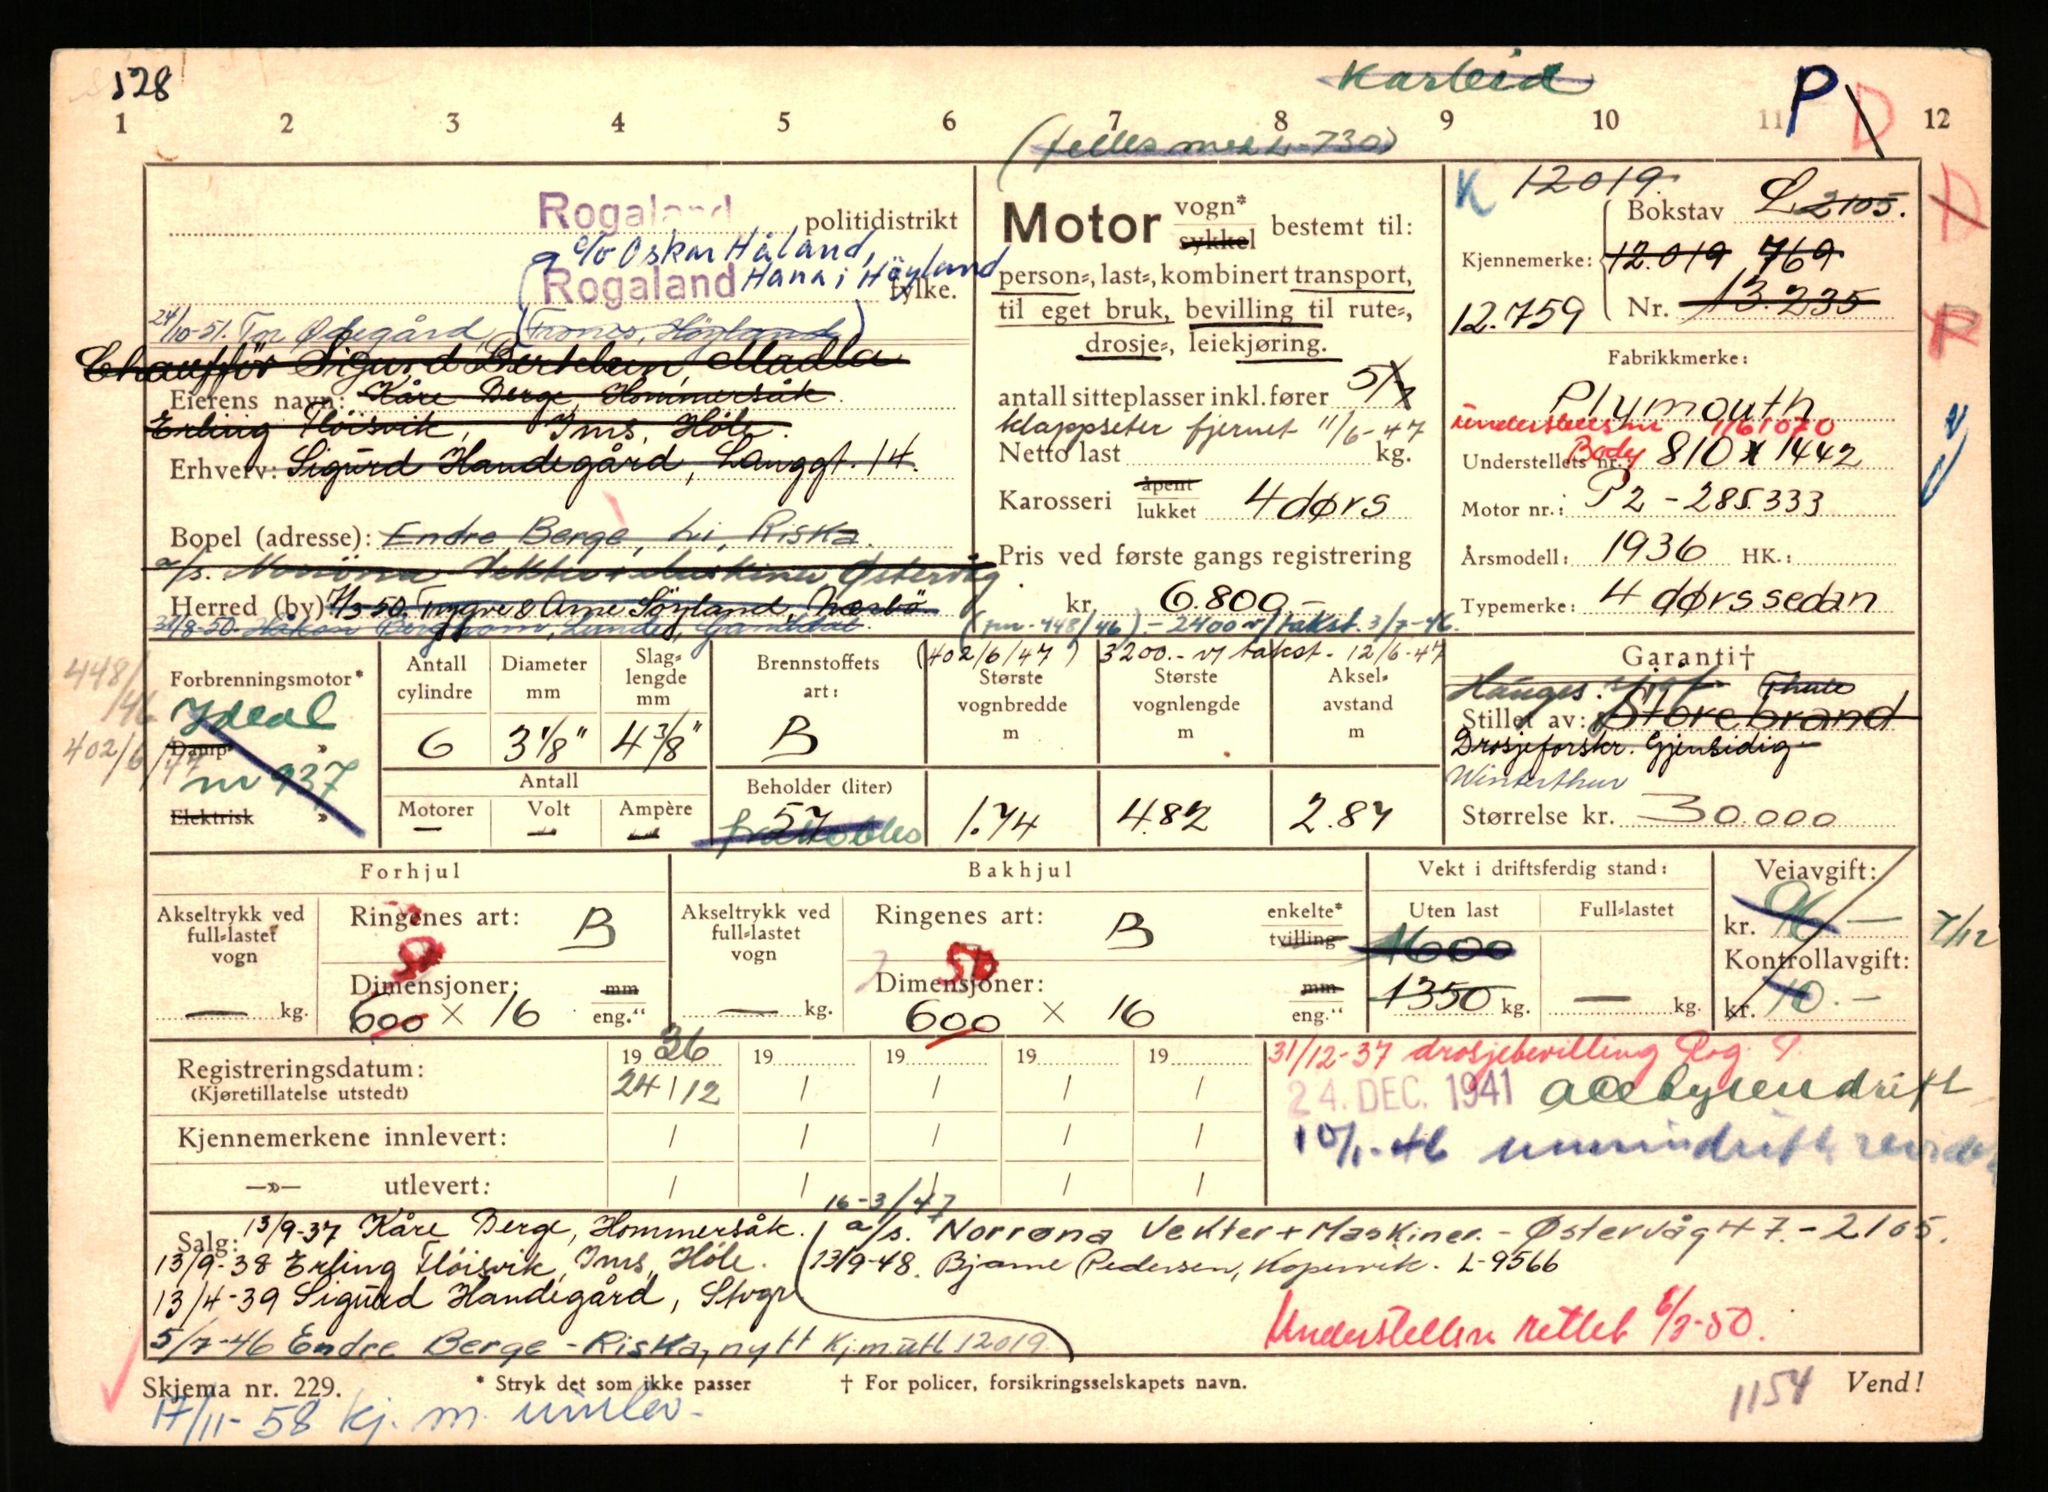 128
Karleid
P D
1 2 3 4 5 6 7 8 9 10 11 12
(felles med L-730)
Rogaland politidistrikt
c/o Oskar Håland,
Rogaland fylke.
Hana i Høyland
24/10-51. Tr. Ødegård, (Trones, Høyland)
Chauffør Sigurd Bertelsen, Madla
Eierens navn: Kåre Berge, Hommersåk.
Erling Fløisvik, Ims, Høle.
Erhverv: Sigurd Handegård, Langgt. 14.
Bopel (adresse): Endre Berge, Li, Riska.
a/s. Norrøna Vekter + Maskiner, Østervåg
Herred (by) 7/3 50. Trygve & Arne Söyland, Nærbö.
31/8-50. Håkon Bergtrom, Lunde, Ganddal.
Motor vogn* sykkel bestemt til:
person-, last-, kombinert transport,
til eget bruk, bevilling til rute-,
drosje-, leiekjøring.
antall sitteplasser inkl. fører 5/7
klappseter fjernet 11/6-47
Netto last kg.
Karosseri åpent lukket 4 dørs
Pris ved første gangs registrering
kr. 6.800,-
(nr. 448/46) - 2400 v/takst. 3/7-46.
K 12019.
Bokstav L 2105.
Kjennemerke: 12.019 769
12.759 Nr. 13.235
D
R
Fabrikkmerke:
Plymouth
Understellsnr 1161070
Understellets nr. Body 810 x 1442
Motor nr.: P2 - 285.333
Årsmodell: 1936 HK.:
Typemerke: 4 dørs sedan
448/46
402/6/47
Forbrenningsmotor*
Ideal
Damp* »
nr 937
Elektrisk »
Antall cylindre
6
Diameter mm
3 1/8"
Slag-lengde mm
4 3/8"
Antall
Motorer —
Volt —
Ampère —
Brennstoffets art:
B
Beholder (liter)
57
(402/6/47) 3200.- v/ takst. 12/6-47
Største vognbredde m
1.74
Største vognlengde m
4.82
Aksel-avstand m
2.87
Garanti†
Thule
Stillet av: Storebrand
Drosjeforskr. Gjensidig
Winterthur
Størrelse kr. 30.000
Forhjul
Akseltrykk ved full-lastet vogn
— kg.
Ringenes art: B
50
Dimensjoner: mm
600 x 16 eng."
Bakhjul
Akseltrykk ved full-lastet vogn
— kg.
Ringenes art: B enkelte* tvilling
50
Dimensjoner: mm
600 x 16 eng."
Vekt i driftsferdig stand:
Uten last
1600
1350 kg.
Full-lastet
— kg.
Veiavgift:
kr. 96 — 7/12
Kontrollavgift:
kr. 10.-
Registreringsdatum: 1936 19 19 19 19
(Kjøretillatelse utstedt) 24/12 / / / /
Kjennemerkene innlevert: / / / / /
—»— utlevert: / / / / /
31/12-37 drosjebevilling Rog. P.
24. DEC. 1941 acetylendrift
10/1-46
Salg: 13/9-37 Kåre Berge, Hommersåk.
13/9-38 Erling Fløisvik, Ims, Høle.
13/4-39 Sigurd Handegård, Stvgr
5/7-46 Endre Berge - Riska, nytt kj.m utl 12019.
16-3/47
a/s. Norrøna Vekter + Maskiner. - Østervåg 47. - 2105.
13/9-48. Bjarne Pedersen, Kopervik. L-9566
Understellsnr rettet 6/3-50.
Skjema nr. 229.
* Stryk det som ikke passer
† For policer, forsikringsselskapets navn.
1154
Vend!
17/11-58 kj. m. innlev.